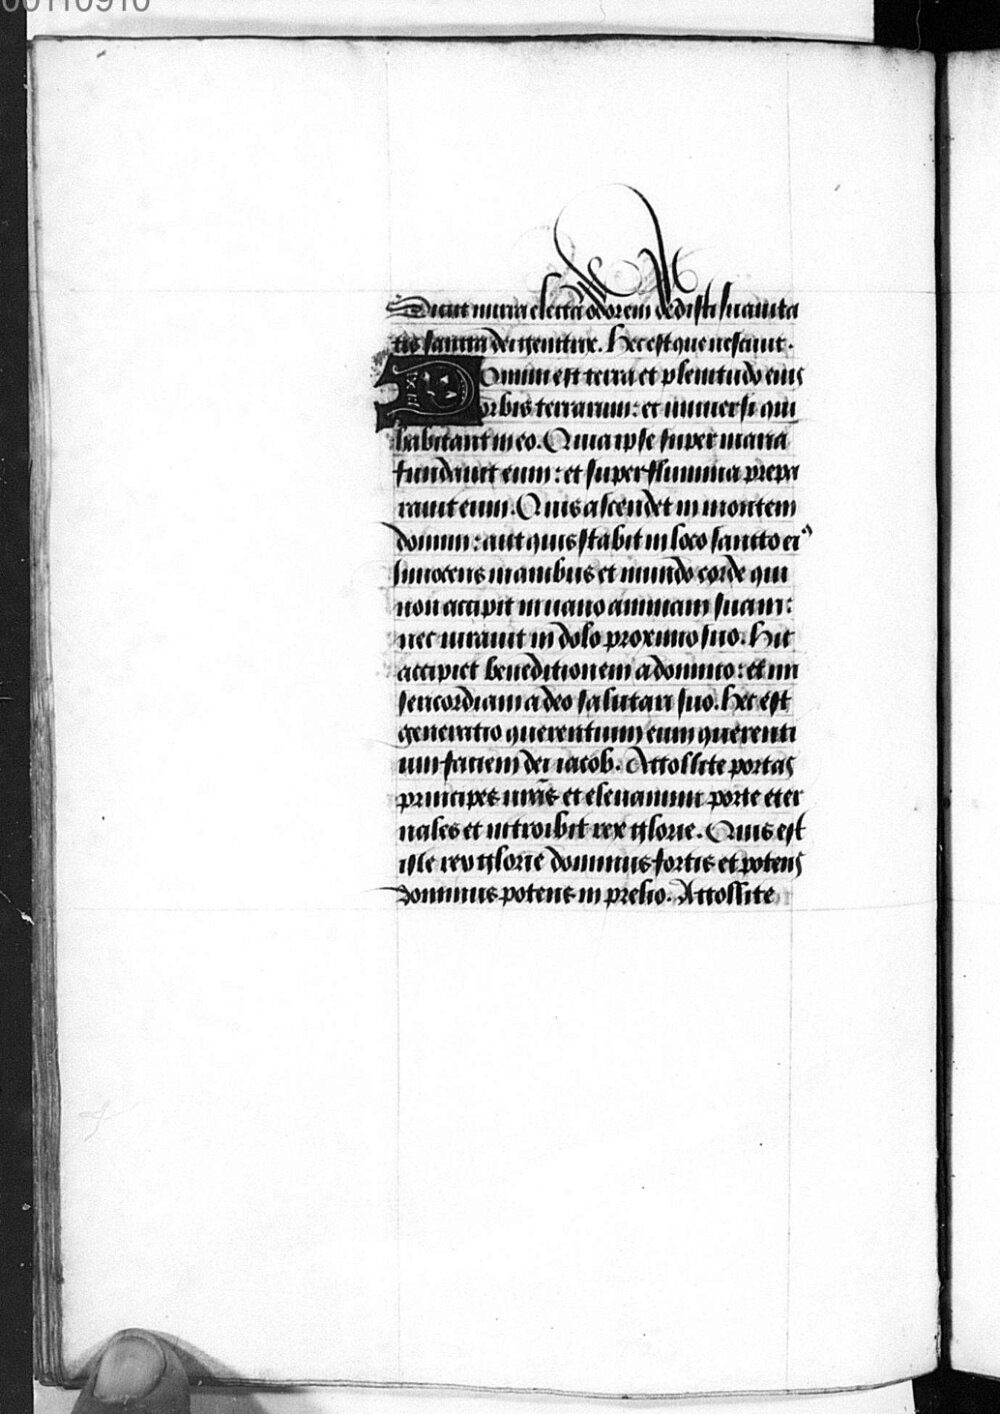 00110910
Sicut mirra electa odorem dedisti suauita
tis sancta dei genitrix. Hec est que nesciuit.
Domini est terra et plenitudo eius
orbis terrarum: et uniuersi qui
habitant in eo. Quia ipse super maria
fundauit eum: et super flumina prepa
rauit eum. Quis ascendet in montem
domini: aut quis stabit in loco sancto eiꝰ
Innocens manibus et mundo corde qui
non accipit in uano animam suam:
nec iurauit in dolo proximo suo. Hic
accipiet beneditionem a domino: et mi
sericordiam a deo salutari suo. Hec est
generatio querentium eum querenti
um faciem dei iacob. Attollite portas
principes urãs et eleuamini porte eter
nales et introibit rex glorie. Quis est
iste rex glorie dominus fortis et potens
dominus potens in prelio. Attollite